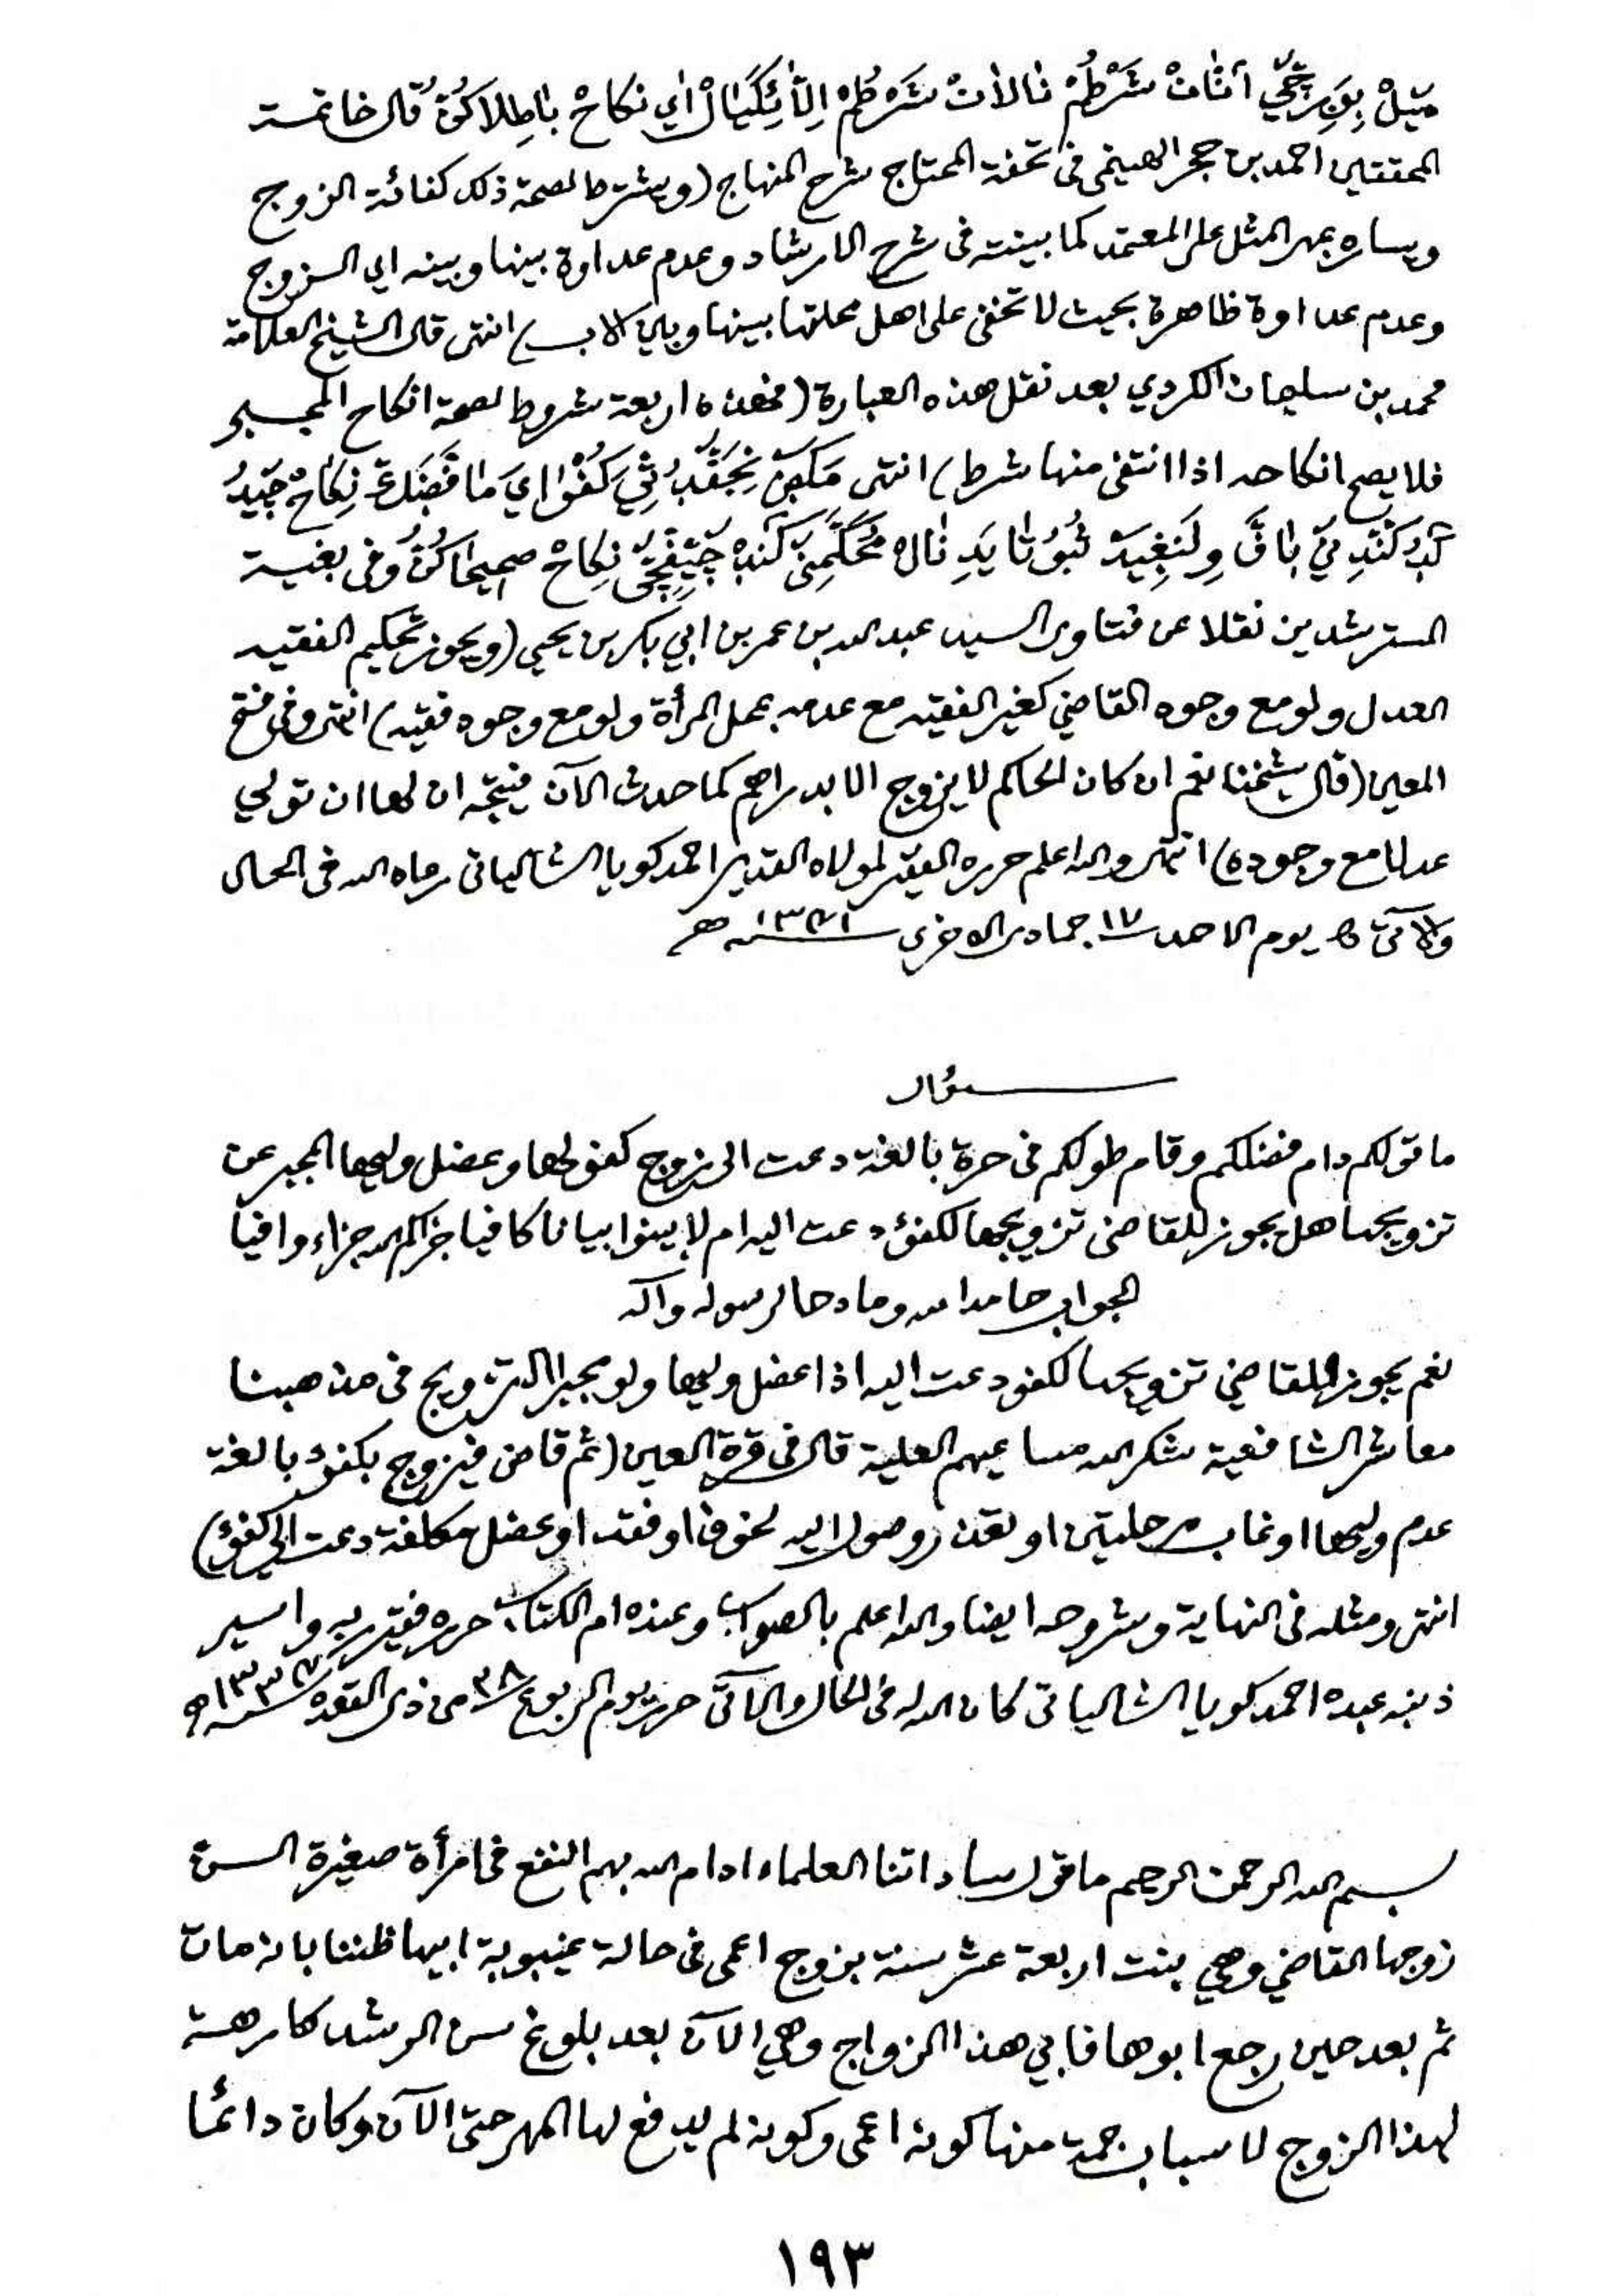 شَرْطُمْ نَالَانْ شَرْطُمْ اِلَّا اي نكاحْ بَاطِلَاكُنُ قال خاتمة
المحققين احمد بن حجر الهيتمى فى تحفة المحتاج شرح المنهاج (ويشترط لصحة ذلك كفائة الزوج
ويساره بمهر المثل على المعتمد كما بينته فى شرح الارشاد وعدم عداوة بينها وبينه اي الزوج
وعدم عداوة ظاهرة بحيث لا تخفى على اهل محلتها بينها وبين الاب) انتهى قال الشيخ العلامة
محمد بن سليمان الكردي بعد نقل هذه العبارة (فهذه اربعة شروط لصحة انكاح المجبر
فلا يصح انكاحه اذا انتفى منها شرط) انتهى نِكَاحْ
نَالْ نِكَاحْ صحيحَاكُنُ وفى بغية
المسترشدين نقلا عن فتاوى السيد عبد الله بن عمر بن ابي بكر بن يحيى (ويجوز تحكيم الفقيه
العدل ولو مع وجود القاضي كغير الفقيه مع عدمه بمحل المرأة ولو مع وجود فقيه) انتهى وفى فتح
المعين (قال شيخنا نعم ان كان الحاكم لا يزوج الا بدراهم كما حدث الآن فيتجه ان لها ان تولي
عدلا مع وجوده) انتهى والله اعلم حرره الفقير لمولاه القدير احمد كويا الشالياتى رعاه الله فى الحال
والآتى يوم الاحد ١٧ جمادى الاخرى ١٣٧١سنه هـ
سؤال
ما قولكم دام فضلكم وقام طولكم فى حرة بالغة دعت الى زوج كفؤ لها وعضل وليها المجبر عن
تزويجها هل يجوز للقاضى تزويجها لكفؤ دعت اليه ام لا بينوا بيانا كافيا جزاكم الله جزاء وافيا
الجواب حامدا لله ومادحا لرسوله وآله
نعم يجوز للقاضي تزويجها لكفؤ دعت اليه اذا عضل وليها ولو مجبرا التزويج فى مذهبنا
معاشر الشافعية شكر الله مساعيهم العلية قال فى قرة العين (ثم قاض فيزوج بكفؤ بالغة
عدم وليها او غاب مرحلتين او تعذر وصول اليه لخوف او فقد او عضل مكلفة دعت الى كفؤ)
انتهى ومثله فى النهاية وشروحه ايضا والله اعلم بالصواب وعنده ام الكتاب حرره فقير ربه واسير
ذنبه عبده احمد كويا الشالياتى كان الله له فى الحال والآتى حرر يوم الربوع من ذى القعدة
بسم الله الرحمن الرحيم ما قول ساداتنا العلماء ادام الله بهم النفع فى امرأة صغيرة السن
زوجها القاضي وهي بنت اربعة عشر سنة بزوج اعمى فى حالة غيبوبة ابيها ظننا بانه مات
ثم بعد حين رجع ابوها فابي هذا الزواج وهي الآن بعد بلوغ سن الرشد كارهة
لهذا الزوج لاسباب جمة منها كونه اعمى وكونه لم يدفع لها المهر حتى الآن وكان دائما
١٩٣